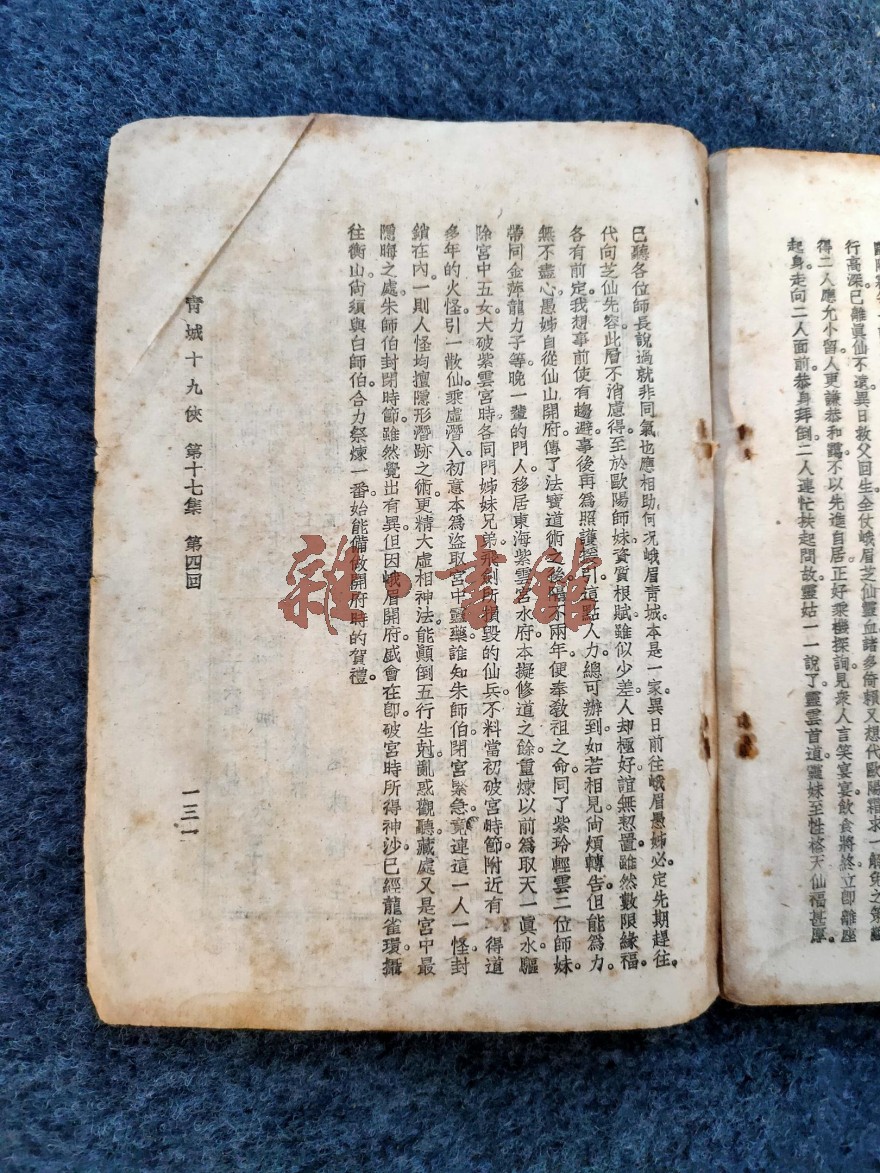 行高深已離眞仙不遠異日救父回生全仗峨眉芝仙靈血諸多倚賴又想代歐陽霜求一解免之策難
得二人應允小留人更謙恭和藹不以先進自居正好乘機探詢見衆人言笑宴宴飮食將終立卽離座
起身走向二人面前恭身拜倒二人連忙扶起問故靈姑一一說了靈雲首道靈妹至性格天仙福甚厚
已聽各位師長說過就非同氣也應相助何况峨眉靑城本是一家異日前往峨眉愚姊必定先期趕往
代向芝仙先容此層不消慮得至於歐陽師妹資質根賦雖似少差人却極好誼無恝置雖然數限緣福
各有前定我想事前使有趨避事後再爲照護援引這點人力總可辦到如若相見尙煩轉吿但能爲力
無不盡心愚姊自從仙山開府傳了法寶道術之後隔不兩年便奉敎祖之命同了紫玲輕雲二位師妹
帶同金萍龍力子等晚一輩的門人移居東海紫雲宮水府本擬修道之餘重煉以前爲取天一眞水驅
除宮中五女大破紫雲宮時各同門姊妹兄弟飛劍所損毀的仙兵不料當初破宮時節附近有一得道
多年的火怪引一散仙乘虛潛入初意本爲盜取宮中靈藥誰知朱師伯閉宮緊急竟連這一人一怪封
鎖在內一則人怪均擅隱形潛跡之術更精大虛相神法能顚倒五行生尅亂惑觀聽藏處又是宮中最
隱晦之處朱師伯封閉時節雖然覺出有異但因峨眉開府盛會在卽破宮時所得神沙已經龍雀環攝
往衡山尙須與白師伯合力祭煉一番始能備做開府時的賀禮
靑城十九俠 第十七集 第四回
一三一
雜書館